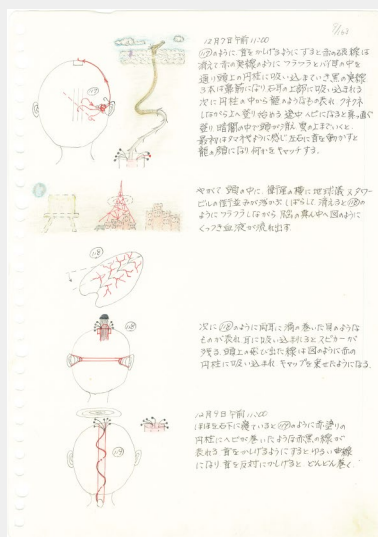 12月7日午前11:00
117のように首をかしげるようにすると赤の点線は
消えて赤の実線のようにフラフラと右耳の中を
通り頭上の円柱に吸い込まれていき黒の実線
3本は最前になり右耳の上部に吸い込まれる
次に円柱の中から龍のようなもの表れ クネクネ
しながら上へ登り始める 途中ヘビになると真っ直ぐ
登り 暗闇の中で頭から消え 雲の上までいくと、
最初はタマネギように感じ左右に首を動かすと
龍の顔になり何かをキャッチする。
やがて 頭の中に、 の横に地球儀 タワー
ビルの街並みが浮かぶ しばらくして 消えると118の
ようにフラフラしながら 脳の真ん中へ図のように
くっつき血液が流れ出す
118
次に のように両耳に渦の巻いた耳のような
ものが表れ耳に吸い込まれるとスピーカーが
残る。頭上の飛び出た線は図のように赤の
円柱に吸い込まれ キャップを乗せたようになる.
12月9日午前11:00
ほほを右下に寝ていると のように赤塗りの
円柱にヘビが巻いたような赤黒の線が
表れる 首をかしげるようにすると ゆるい曲線
になり 首を反対にかしげると、どんどん巻く.